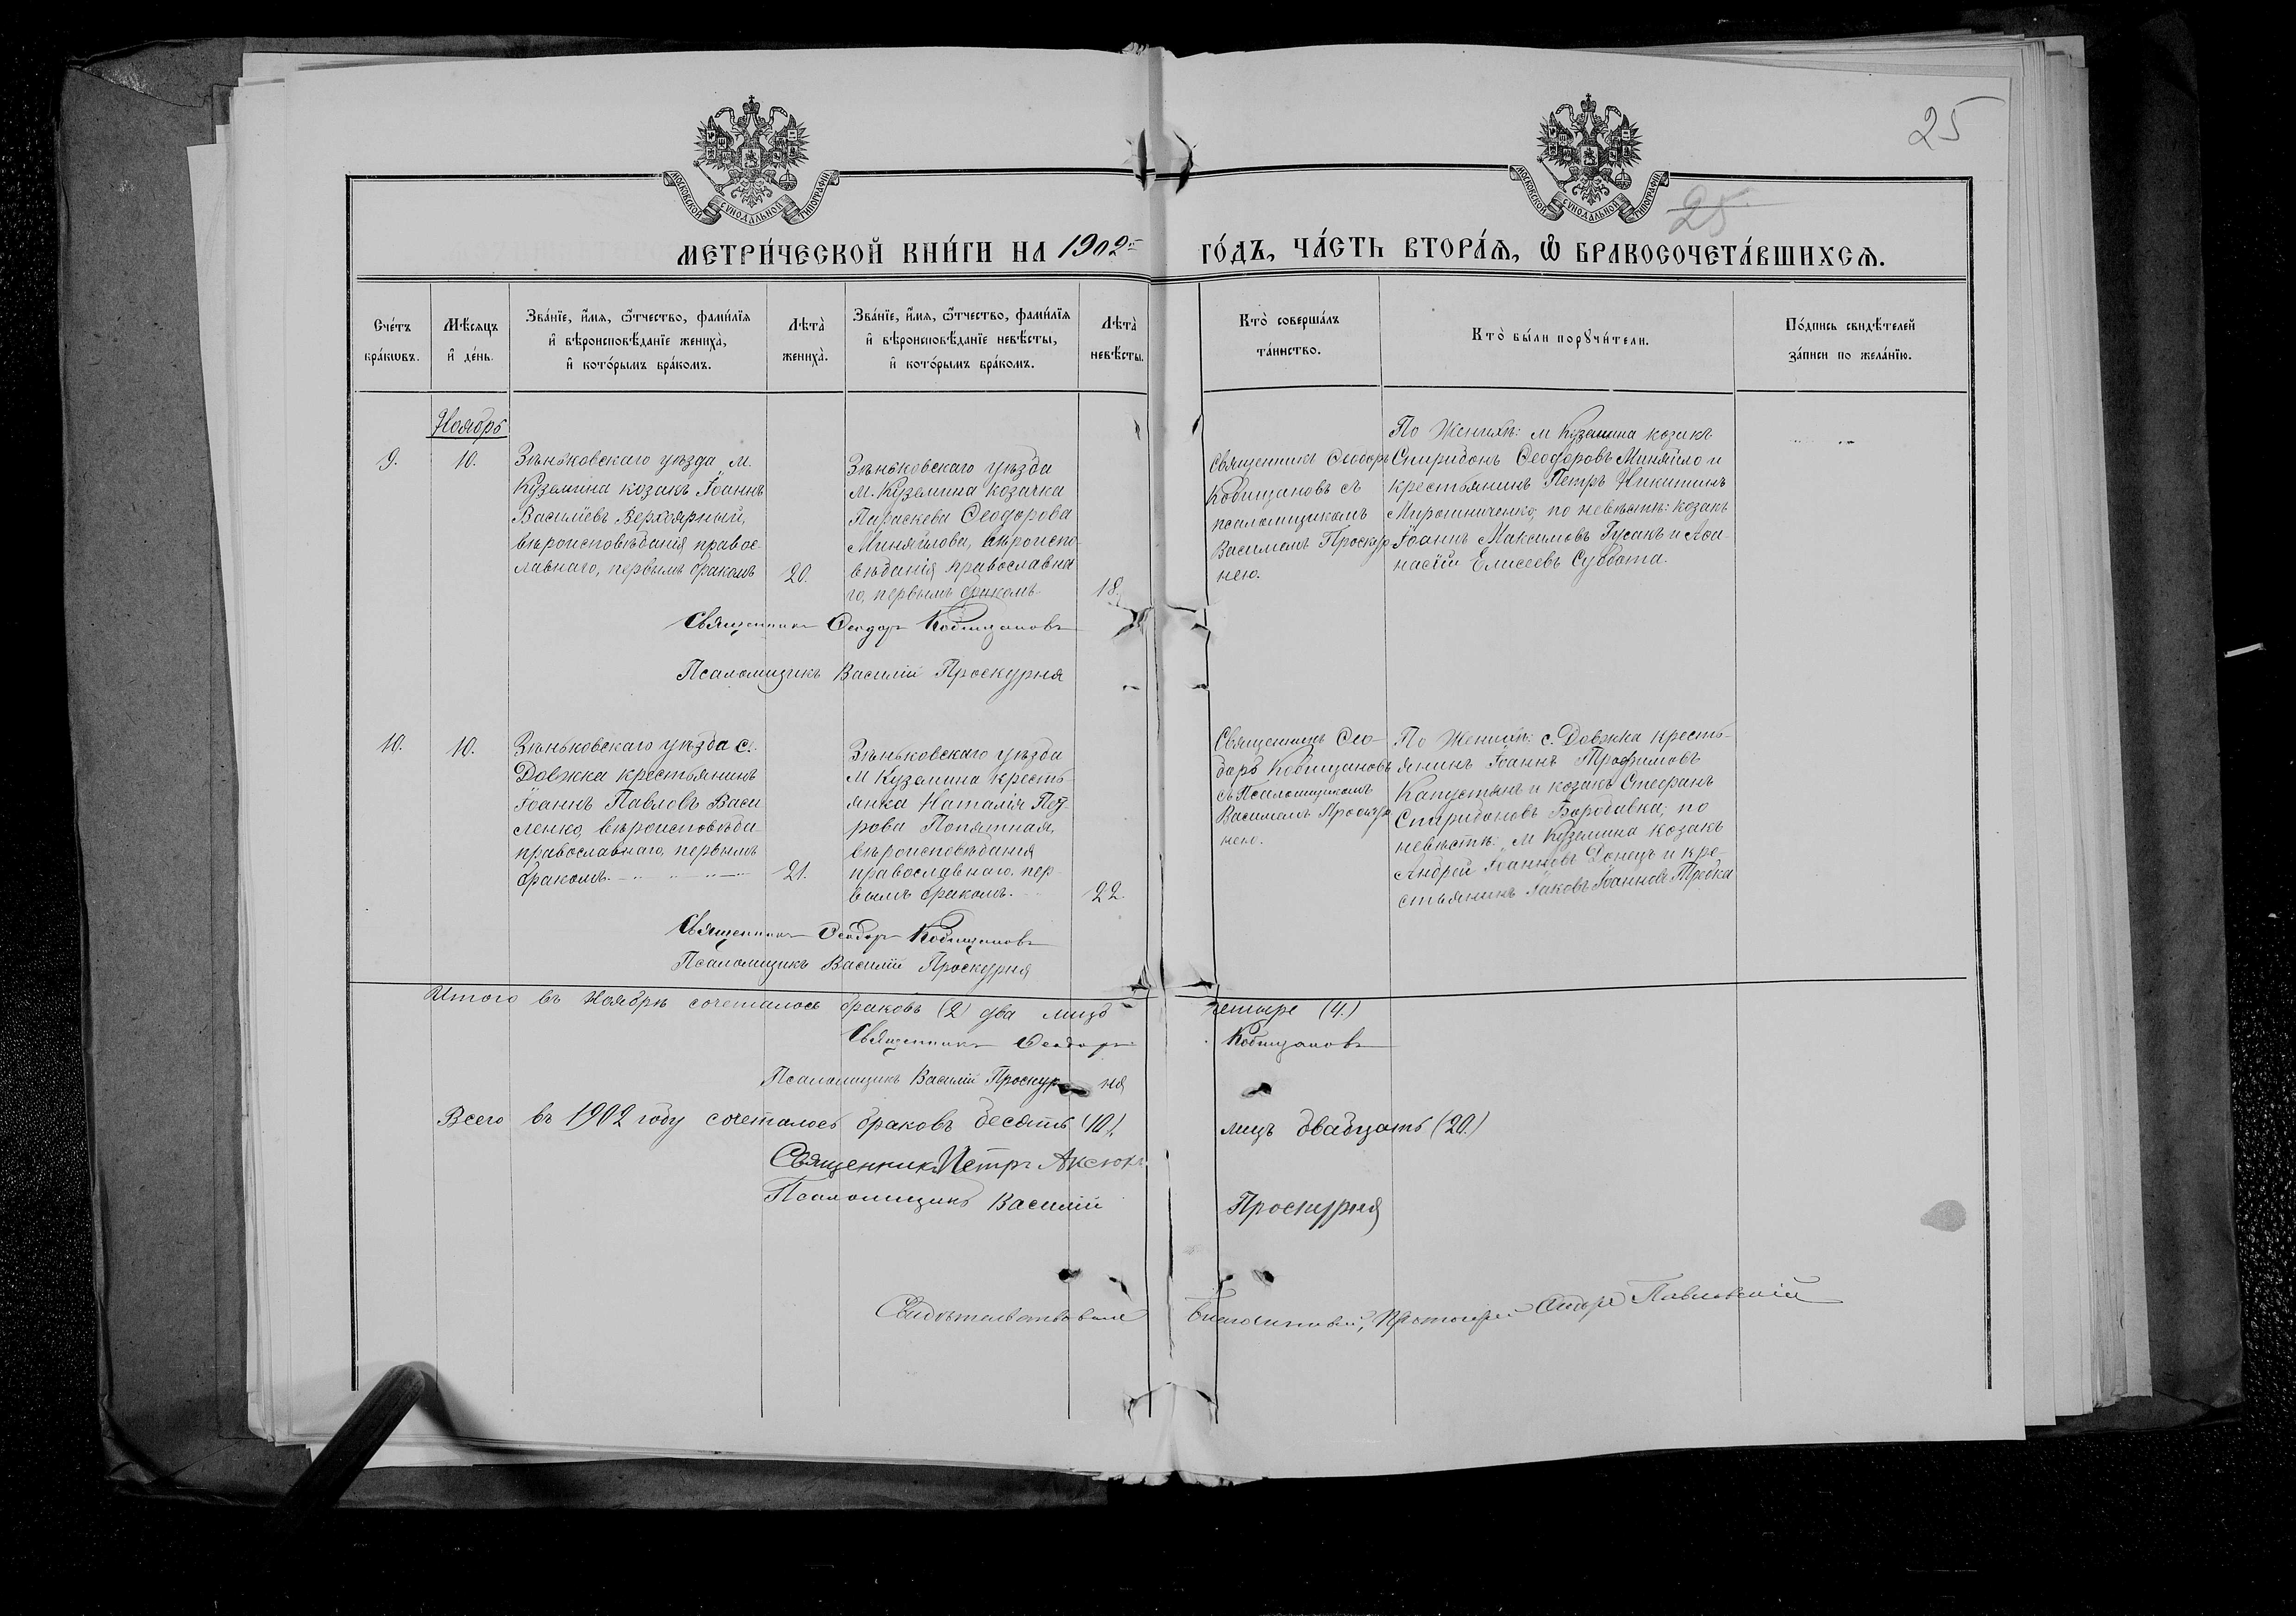 25
25
МОСКОВСКОЙ СУНОДАЛЬНОЙ ТИПОГРАФІИ
МОСКОВСКОЙ СУНОДАЛЬНОЙ ТИПОГРАФІИ
МЕТРИ́ЧЕСКОЙ КНИ́ГИ НА 1902й ГО́ДЪ, ЧА́СТЬ ВТОРА́Ѧ, Ѽ БРАКОСОЧЕТА́ВШИХСѦ.
Сче́тъ бра́кѡвъ.
Мѣ́сяцъ и҆ де́нь.
Зва́нїе, и҆́мя, ѻ҆́тчество, фами́лїя и҆ вѣроисповѣ́данїе жениха̀, и҆ кото́рымъ бра́комъ.
Лѣта̀ жениха̀.
Зва́нїе, и҆́мя, ѻ҆́тчество, фами́лїя и҆ вѣроисповѣ́данїе невѣ́сты, и҆ кото́рымъ бра́комъ.
Лѣта̀ невѣ́сты.
Кто̀ соверша́лъ та́инство.
Кто̀ бы́ли порꙋчи́тели.
По́дпись свидѣ́телей за́писи по жела́нїю.
Ноябрь
9.
10.
Зѣньковскаго уѣзда м.
Куземина козакъ Іоаннъ
Василіевъ Верхоярный,
вѣроисповѣданія правос-
лавнаго, первымъ бракомъ
20.
Зѣньковскаго уѣзда
м. Куземина козачка
Параскева Ѳеодорова
Миняйлова, вѣроиспо-
вѣданія православна
го, первымъ бракомъ.
18.
Священникъ Ѳеодоръ
Кобищановъ съ
псаломщикомъ
Василіемъ Проскур
нею.
По Женихѣ: м Куземина козакъ
Спиридонъ Ѳеодоровъ Миняйло и
крестьянинъ Петръ Никитинъ
Мирошниченко; по невѣстѣ: козакъ
Іоаннъ Максимовъ Гусакъ и Аѳа-
насій Елисеевъ Суббота.
Священникъ Ѳеодоръ Кобищановъ
Псаломщикъ Василій Проскурня
10.
10.
Зѣньковскаго уѣзда с.
Должка крестьянинъ
Іоаннъ Павловъ Васи
ленко, вѣроисповѣда-
православнаго, первымъ
бракомъ.
21.
Зѣньковскаго уѣзда
м Куземина кресть-
янка Наталія Пет
рова Попятная,
вѣроисповѣданія
православнаго, пер-
вымъ бракомъ.
22.
Священникъ Ѳео-
доръ Кобищановъ
съ Псаломщикомъ
Василіемъ Проскур
нею.
По Женихѣ: с. Должка кресть-
янинъ Іоаннъ Трофимовъ
Капустянъ и козакъ Стефанъ
Спиридоновъ Бородавка; по
невѣстѣ: м Куземина козакъ
Андрей Іоанновъ Донецъ и кре-
стьянинъ Іаковъ Іоанновъ
Священникъ Ѳеодоръ Кобищановъ
Псаломщикъ Василій Проскурня
Итого въ Ноябрѣ сочеталось браковъ (2) два лицъ четыре (4.)
Священникъ Ѳеодоръ Кобищановъ
Псаломщикъ Василій Проскурня
Всего въ 1902 году сочеталось браковъ десять (10). лицъ двадцать (20.)
Священникъ Петръ Аксюкъ
Псаломщикъ Василій Проскурня
Свидѣтельствовалъ Благочинный, Протоіерей Павловскій